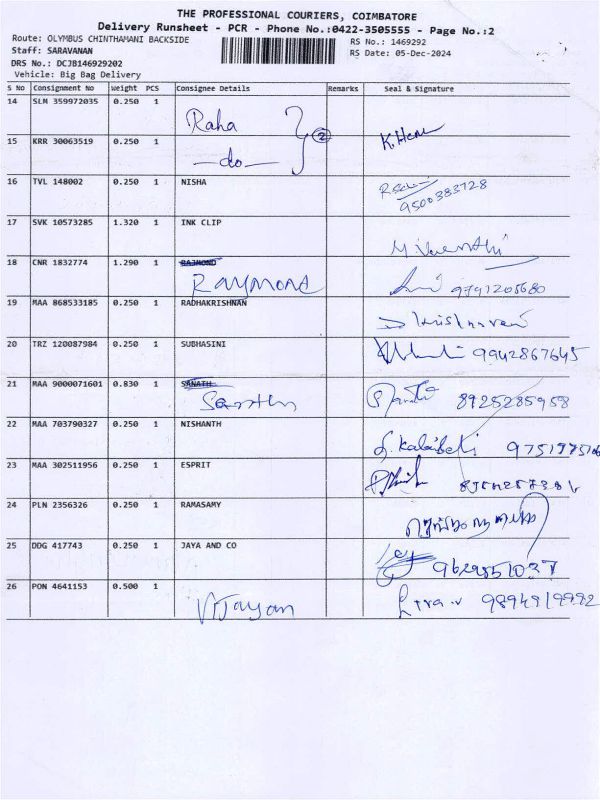 THE PROFESSIONAL COURIERS, COIMBATORE
Delivery Runsheet - PCR - Phone No.:0422-3505555 - Page No.:2
Route: OLYMBUS CHINTHAMANI BACKSIDE RS No.: 1469292
Staff: SARAVANAN RS Date: 05-Dec-2024
DRS No.: DCJB146929202
Vehicle: Big Bag Delivery
S No Consignment No Weight PCS Consignee Details Remarks Seal & Signature
14 SLM 359972035 0.250 1 Raha 2
15 KRR 30063519 0.250 1 —do—
16 TVL 148002 0.250 1 NISHA 9500383728
17 SVK 10573285 1.320 1 INK CLIP
18 CNR 1832774 1.290 1 RAJMOND Raymond 9791205680
19 MAA 868533185 0.250 1 RADHAKRISHNAN
20 TRZ 120087984 0.250 1 SUBHASINI 9942867645
21 MAA 9000071601 0.830 1 SANATH 8925285958
22 MAA 703790327 0.250 1 NISHANTH
23 MAA 302511956 0.250 1 ESPRIT
24 PLN 2356326 0.250 1 RAMASAMY
25 DDG 417743 0.250 1 JAYA AND CO
26 PON 4641153 0.500 1 Vijayan